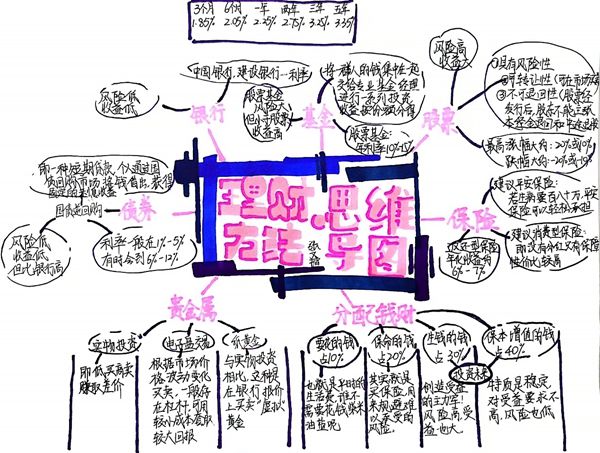 3个月 6个月 一年 两年 三年 五年
1.85% 2.05% 2.25% 2.75% 3.25% 3.35%
中国银行,建设银行—利率
风险低
收益低
银行
股票基金
风险大
但小于股票
收益高
基金
将一群人的钱集中在一起
交给专业基金经理
进行一系列投资
股票基金:
年利率10%-15%
风险高
收益大
股票
①具有风险性
②可转让性
③不可退回性(股票经
发行后,股东不能主张
最高涨幅大约:20%或10%
跌幅大约:
即一种短期贷款,仅通过国
债回购市场将钱借出,获得
固定的某值收益
国债逆回购
债券
风险低
收益低
但比银行高
利率一般在1%-5%
有时会到6%-12%
理财思维
方法导图
保险
建议平安保险:
若生病要百八十万,平安
保险可以轻松承担
建议消费型保险
即没有分红又有保险
性价比较高
返还型保险
年化收益为
6%-7%
贵金属
实物投资
即低买高卖
赚取差价
电子盘交易
根据市场价
格波动变化
买卖,一般存
在杠杆,可用
较小成本套取
较大回报
纸黄金
与实物投资
相比,这种是
在银行报价
上买卖“虚拟”
黄金
分配钱财
要花的钱
占10%
也就是平时的
生活费,谁不
需要花钱柴米
油盐呢
保命的钱
占20%
其实就是
买保险,用
来规避难
以承受的
风险。
生钱的钱
占30%
创造受益
的主力军!
风险高,受
益也大。
投资未来
保本增值的钱
占40%
特质是稳定,
对受益要求不
高,风险也低